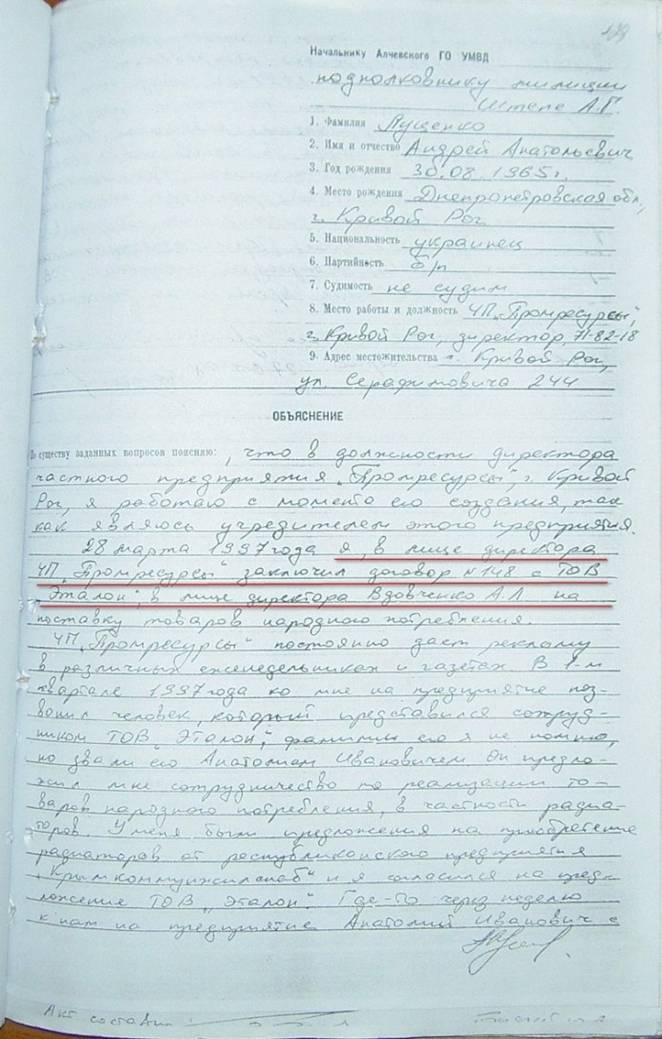 Начальнику Алчевского ГО УМВД
подполковнику милиции
Штепе А.Г.
1. Фамилия Луценко
2. Имя и отчество Андрей Анатольевич
3. Год рождения 30.08.1965г.
4. Место рождения Днепропетровская обл,
г. Кривой Рог
5. Национальность украинец
6. Партийность б/п
7. Судимость не судим
8. Место работы и должность ЧП „Промресурсы",
г. Кривой Рог, директор, 71-82-18
9. Адрес местожительства г. Кривой Рог,
ул. Серафимовича 244
ОБЪЯСНЕНИЕ
По существу заданных вопросов поясняю: , что в должности директора
частного предприятия „Промресурсы", г. Кривой
Рог, я работаю с момента его создания, так
как являюсь учредителем этого предприятия.
28 марта 1997 года я, в лице директора
ЧП „Промресурсы" заключил договор №148 с ТОВ
„Эталон", в лице директора Вдовченко А.Л на
поставку товаров народного потребления.
ЧП „Промресурсы" постоянно дает рекламу
в различных еженедельниках и газетах. В 1-м
квартале 1997 года ко мне на предприятие поз-
вонил человек, который представился сотруд-
ником ТОВ „Эталон", фамилии его я не помню,
но звали его Анатолием Ивановичем. Он предло-
жил мне сотрудничество по реализации то-
варов народного потребления, в частности радиа-
торов. У меня были предложения на приобретение
радиаторов от республиканского предприятия
„Крымкоммунжилснаб" и я согласился на пред-
ложение ТОВ „Эталон". Где-то через неделю
к нам на предприятие Анатолий Иванович с
Акт состав